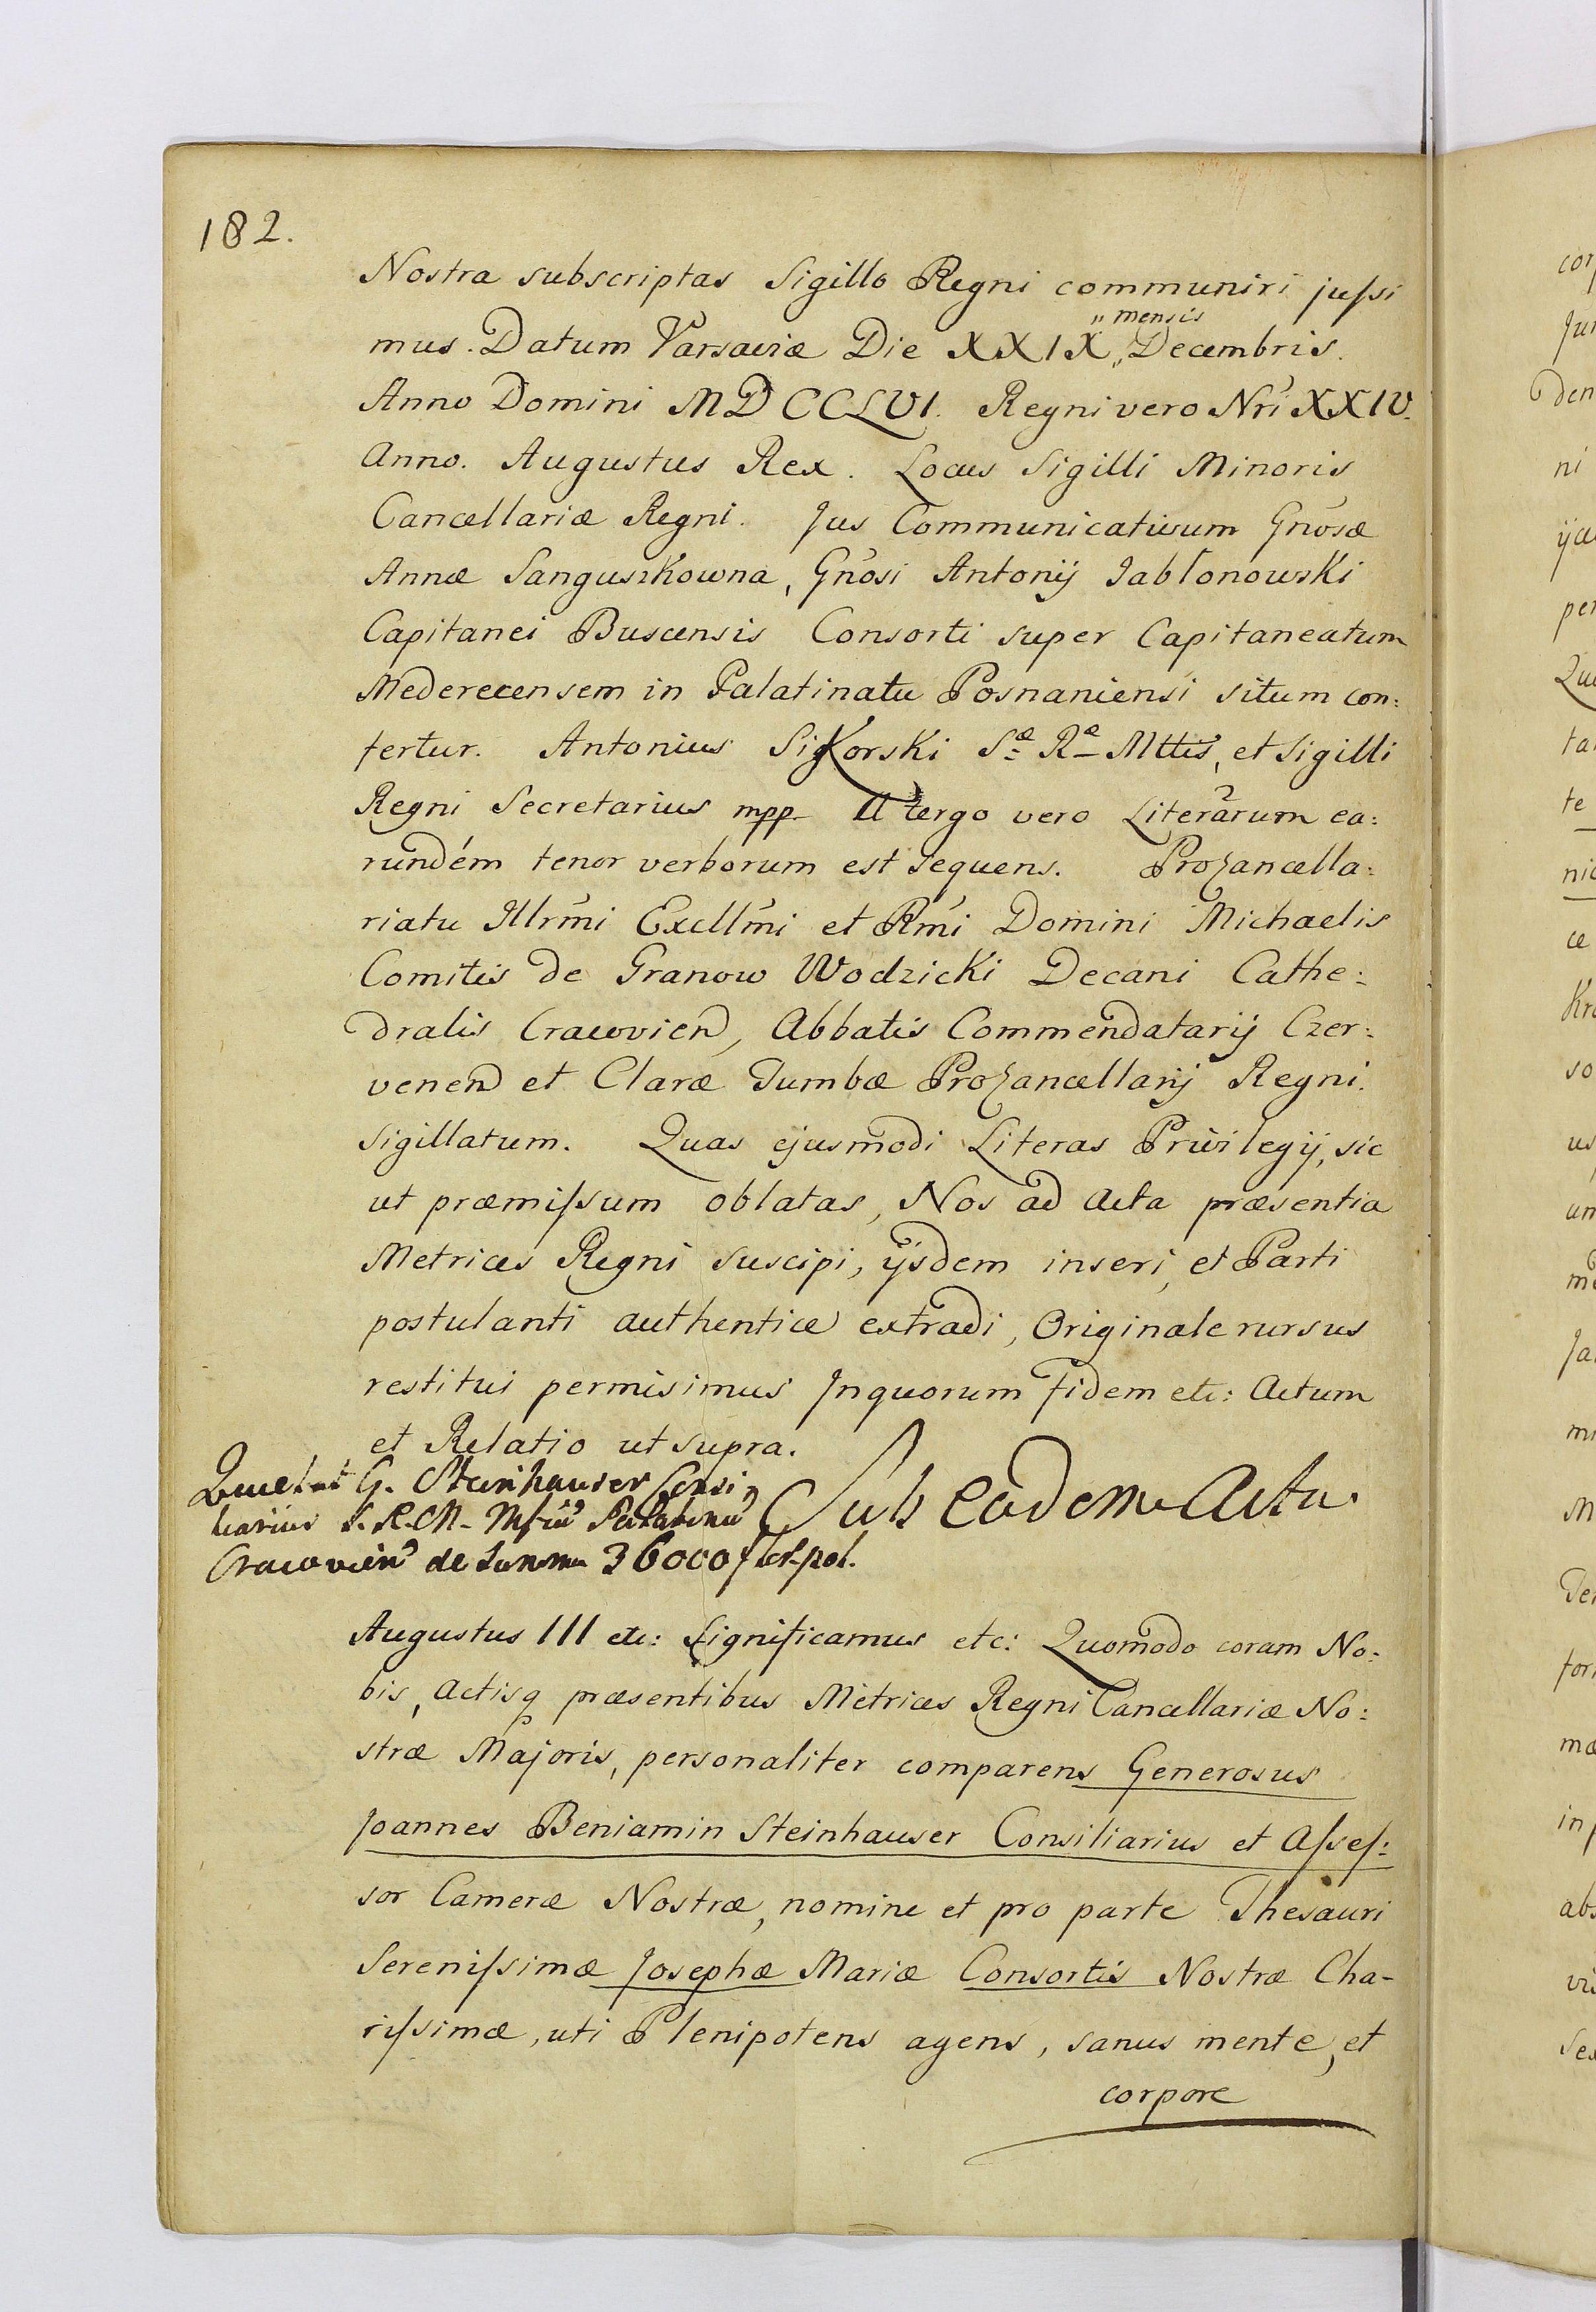 182.
Nostra subscriptas Sigillo Regni communiri jussi
mus. Datum Varsaviæ Die XXIX „ mensis „ Decembris.
Anno Domini MDCCLVI. Regni vero Nri XXIV.
Anno. Augustus Rex. Locus Sigilli Minoris
Cancellariæ Regni. Jus Communicativum Gnosæ
Annæ Sanguszkowna, Gnosi Antonij Jabłonowski
Capitanei Buscensis Consorti super Capitaneatum
Mederecensem in Palatinatu Posnaniensi situm con:
fertur. Antonius Sikorski Sæ Ræ Mttis, et Sigilli
Regni Secretarius mpp A tergo vero Literarum ea:
rundém tenor verborum est sequens. Procancella:
riatu Illrmi Excllmi et Rmi Domini Michaelis
Comitis de Granow Wodzicki Decani Cathe:
dralis Cracovien, Abbatis Commendatarij Czer:
venen et Claræ Tumbæ Procancellarij Regni.
Sigillatum. Quas ejusmodi Literas Privilegij, sic
ut præmissum oblatas, Nos ad Acta præsentia
Metrices Regni suscipi, ijsdem inseri, et Parti
postulanti authentice extradi, Originale rursus
restitui permisimus Inquorum fidem etc: Actum
et Relatio ut supra.
Quietat G. Steinhauser Consi,
liarius S. R. M. Mfcu Palatinu
Cracovien de Summa 36000 flor. pol.
Sub eodem Actu.
Augustus III etc: Significamus etc: Quomodo coram No:
bis, Actisq præsentibus Metrices Regni Cancellariæ No:
stræ Majoris, personaliter comparens Generosus
Joannes Beniamin Steinhauser Consiliarius et Asses:
sor Cameræ Nostræ, nomine et pro parte Thesauri
Serenissimæ Josephæ Mariæ Consortis Nostræ Cha-
rissimæ, uti Plenipotens agens, sanus mente, et
corpore